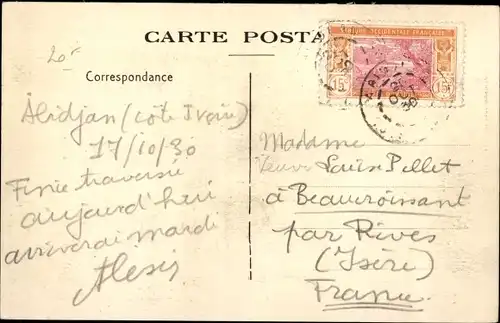 CARTE POSTA
AFRIQUE OCCIDENTALE FRANÇAISE
15 15
20f
Correspondance
Abidjan (Côte Ivoire)
17/10/30
Finie traversée
aujourd'hui
arriverai mardi
Alexis
Madame
Veuve Louis Pellet
à Beaucroissant
par Rives
(Isère)
France